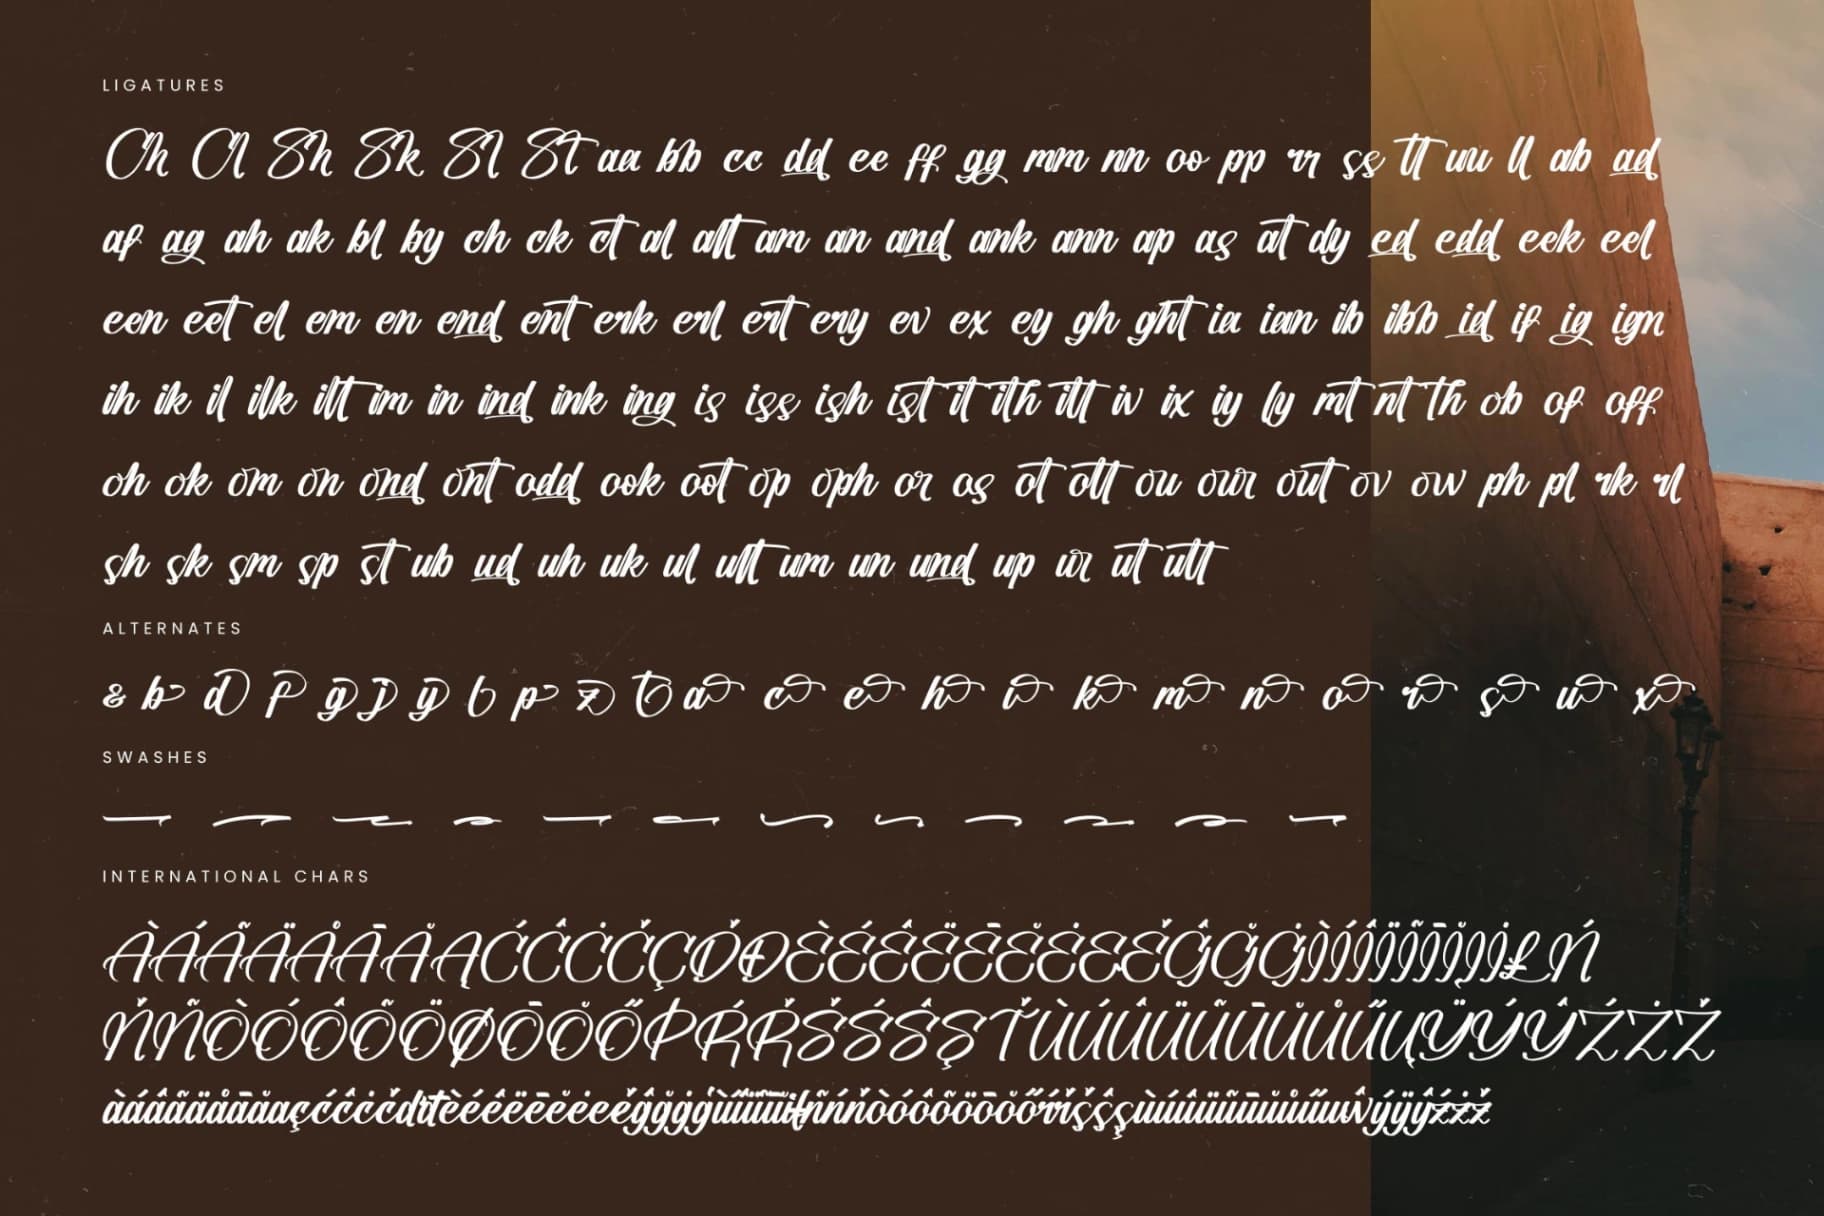 LIGATURES
Ch Cl Sh Sk Sl St aa bb cc dd ee ff gg mm nn oo pp rr ss tt uu ll ab ad
af ag ah ak bl by ch ck ct al alt am an and ank ann ap as at dy ed edd eek eel
een eet el em en end ent erk erl ert ery ev ex ey gh ght ia ian ib ibb id if ig ign
ih ik il ilk ilt im in ind ink ing is iss ish ist it ith itt iv ix iy ly mt nt th ob of off
oh ok om on ond ont odd ook oot op oph or os ot ott ou our out ov ow ph pl rk rl
sh sk sm sp st ub ud uh uk ul ult um un und up ur ut utt
ALTERNATES
& b d f g j y l p z t a c e h i k m n o r s u x
SWASHES
INTERNATIONAL CHARS
ÀÁÃÄÅĀĂĄĆĈĊČÇĎĐÈÉÊËĒĔĖĘĚĜĞĠÌÍÎÏĨĪĬĮİŁŃ
ŇÑÒÓÔÕÖØŌŎŐÞŔŘŠŚŜŞŤÙÚÛÜŨŪŬŮŰŲŸÝŶŹŻŽ